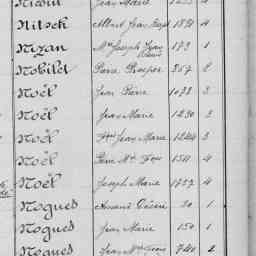 Nicoul Jean Marie 1233 4
Nitsch Albert Jean Bapt 1831 4
Nizan Mie Joseph Jean 173 1
Nobilet Pierre Prosper 867 2
Noël Jean Pierre 1038 3
Noël Jean Marie 1230 3
Noël Jean Marie 1244 3
Noël Pierre M. Fois 1511 4
Noël Joseph Marie 1757 4
Nogues Amand Désiré 30 1
Nogues Jean Marie 150 1
Nogues Jean 740 2